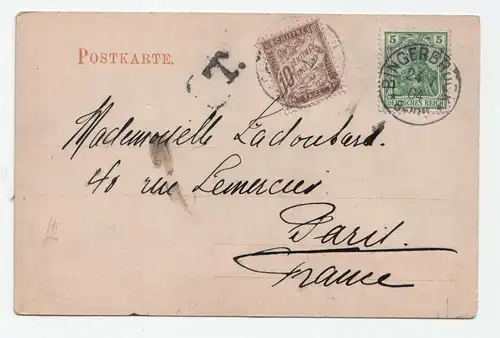 POSTKARTE.
T.
10
5 5
DEUTSCHES REICH
BINGERBRÜCK
24
Mademoiselle Ladoubard.
40 rue Lemercier
Paris.
France